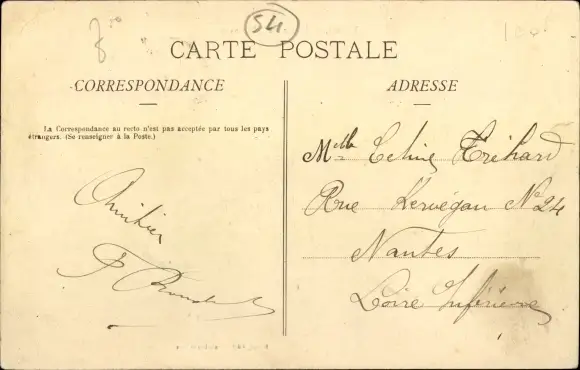 54
CARTE POSTALE
CORRESPONDANCE
ADRESSE
La Correspondance au recto n'est pas acceptée par tous les pays
étrangers. (Se renseigner à la Poste.)
Amitiés
Melle Celine Tréhard
Rue Kervégan No 24
Nantes
Loire Inférieure